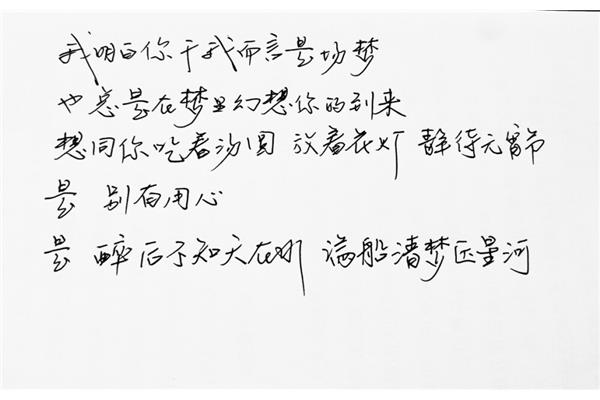 我明白你于我而言是场梦
也总是在梦里幻想你的到来
想同你吃着汤圆 放着花灯 静待元宵节
是 别有用心
是 醉后不知天在哪 满船清梦压星河